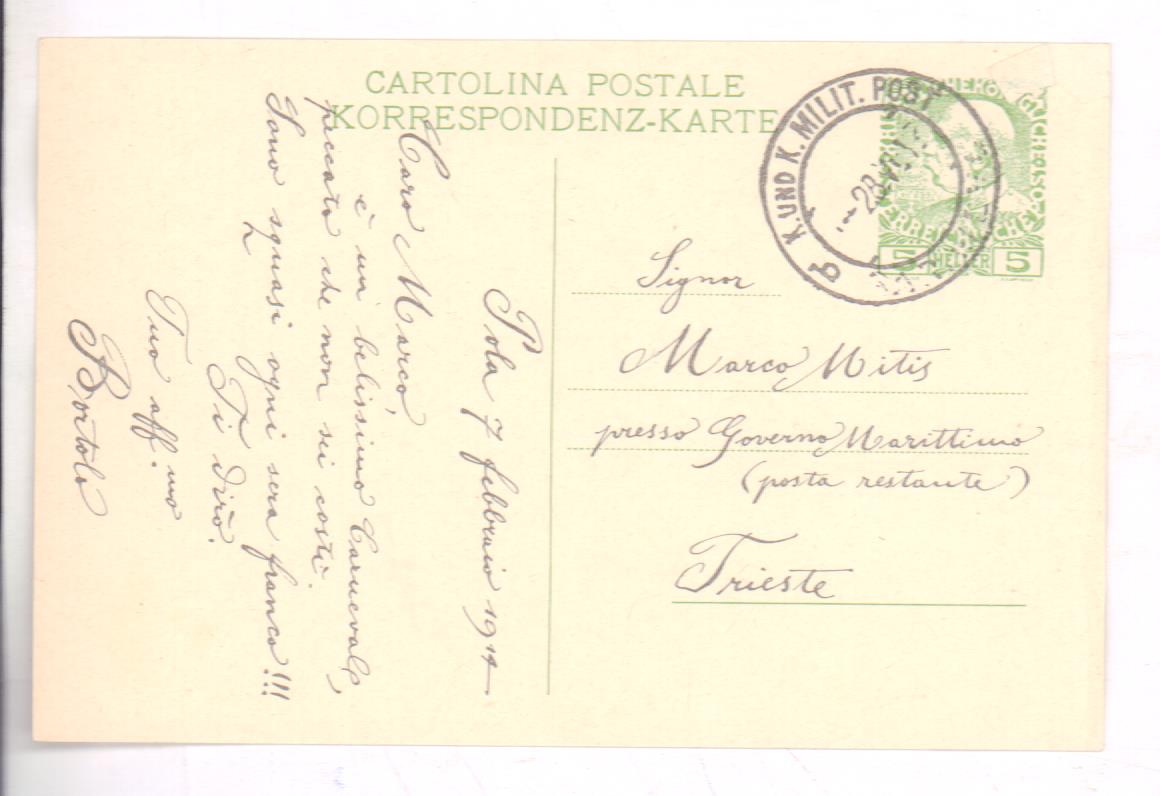 CARTOLINA POSTALE
KORRESPONDENZ-KARTE
K. UND K. MILIT. POST
28 VII
5 HELLER 5
Signor
Marco Mitis
presso Governo Marittimo
(posta restante)
Trieste
Pola 7 febbraio 1914
Caro Marco,
è un belissimo Carnevale,
peccato che non sei costì.
Sono squasi ogni sera franco!!!
Ti dirò.
Tuo aff.mo
Bortolo